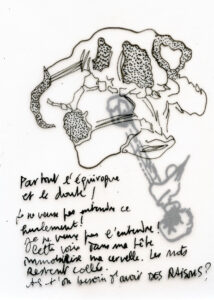 Partout l'équivoque
et le doute !
Je ne veux pas entendre ce
hurlement !
Je ne veux pas l'entendre !
Cette voix dans ma tête
immobilise ma cervelle. Les mots
Restent collés.
A-t-on besoin d'avoir DES RAISONS ?